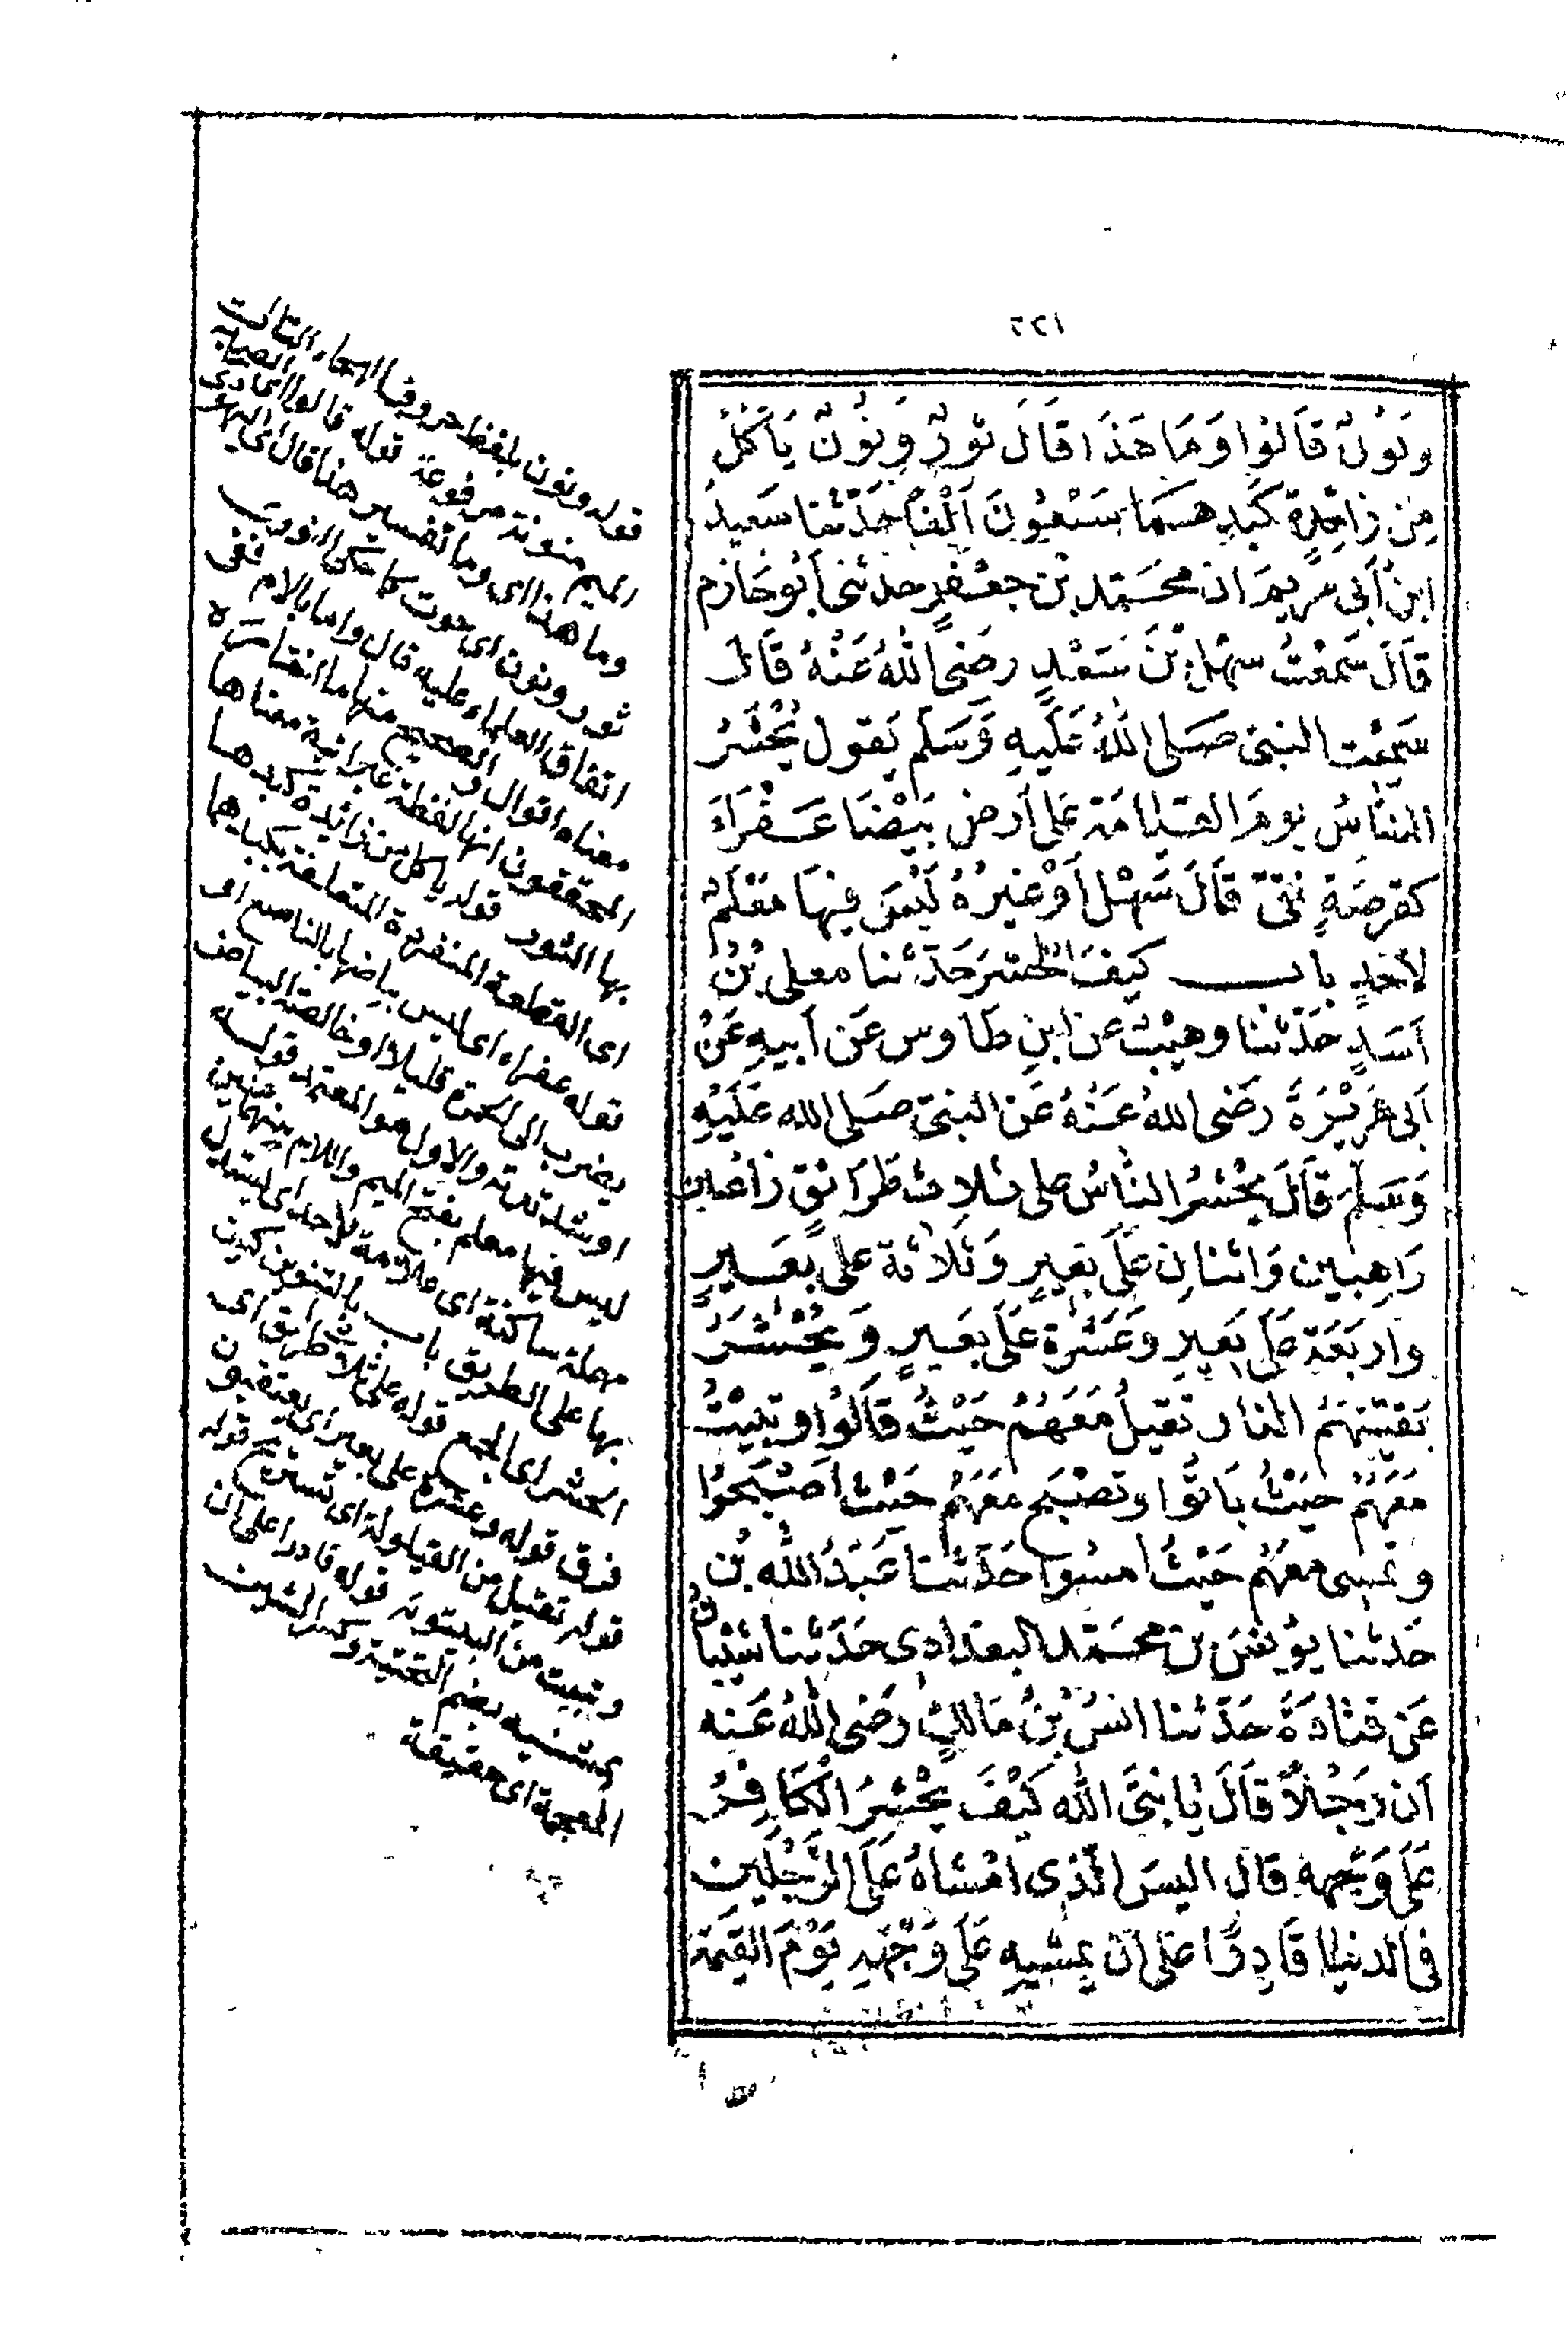 ١٢٢
وَنُونٌ قَالُوا وَمَا هَذَا قَالَ ثَوْرٌ وَنُونٌ يَأْكُلُ
مِنْ زَائِدَةِ كَبِدِهِمَا سَبْعُونَ أَلْفًا حَدَّثَنَا سَعِيدُ
ابْنُ أَبِي مَرْيَمَ انا مُحَمَّدُ بْنُ جَعْفَرٍ حدثني أَبُو حَازِم
قَالَ سَمِعْتُ سَهْلَ بْنَ سَعْدٍ رَضِيَ اللهُ عَنْهُ قَالَ
سَمِعْتُ النبي صَلى اللهُ عَلَيهِ وَسَلَّمَ يَقول يُحْشَرُ
النَّاسُ يومَ القيامَة عَلى أَرضٍ بَيْضَا عَفْرَاءَ
كَقرصَةِ نَقِيّ قَالَ سَهْل أَوْ غَيْرُهُ لَيْسَ فِيهَا مَعْلَمٌ
لأَحَدٍ باب كَيفَ الحشر حَدَّثنا معلى بْنُ
أَسَدٍ حَدّثنا وهيْبٌ عن ابنِ طَاوس عَن أَبيهِ عَنْ
أَبى هُرَيْرَةَ رَضى اللهُ عَنهُ عَن النبيّ صَلى الله عَلَيْهِ
وَسَلَّمَ قَالَ يُحْشرُ النَّاسُ على ثلاث طَرَائقٍ رَاغبين
رَاهِبين وَاثنانِ عَلَى بَعِيرٍ وَثَلاثَة على بَعيرٍ
وَاربَعَة عَلى بَعِيرٍ وَعَشْرة عَلَى بعَيرٍ وَيُحْشَرُ
بَقيَّتهُمُ النار تقيلُ مَعَهُمْ حَيْثُ قَالُوا وتبِيْتُ
مَعَهُمْ حَيْثُ بَاتُوا وتُصْبح مَعَهُمْ حَيْثُ اصْبَحُوا
وتمسى معَهُمْ حَيْثُ امسُوا حَدَّثنا عَبْدُ الله بْن
حَدثنا يُونسُ بن مُحَمَّد البغدادى حَدَّثنا شَيْبانُ
عَن قتادَةَ حَدّثنا انسُ بْنُ مَالكٍ رَضَى اللهُ عَنه
اَن رَجُلاً قَالَ يا نَبىَّ الله كَيْفَ يُحْشرُ الْكَافِرُ
عَلَى وَجهه قال اليسَ الّذى امْشاهُ عَلَى الرّجْلَين
فى الدنيا قَادِرًا عَلى اَن يمشيه عَلى وَجْهِهِ يَوْمَ القِيمة
قوله ونون بلفظ حروف الهجاء الثالث
وما هذا اى وما تفسير هذا قال
ثور ونون اى حوت كما حكى النووى
اتفاق العلماء عليه قال واما بالام ففى
معناه اقوال الصحيح منها ما اختاره
المحققون انها لفظة عبرانية معناها
بها الثور قوله يأكل من زائدة كبدهما
اى القطعة المنفردة المتعلقة بكبدهما
قوله عفراء اى ليس بياضها بالناصع او
يضرب الى الحمرة قليلا او خالصة البياض
او شديدته والاول هو المعتمد قوله
ليس فيها معلم بفتح الميم واللام بينهما عين
مهملة ساكنة اى علامة لاحد اى يستدل
بها على الطريق باب بالتنوين كيف
الحشر اى الجمع قوله على ثلاث طرايق اى
فرق قوله وعشرة على بعير اى يعتقبون
قوله تقيل من القيلولة اى تستريح قوله
وتبيت من البيتوتة قوله قادرا على ان
يمشيه بضم التحتية وكسر الشين
المعجمة اى حقيقة